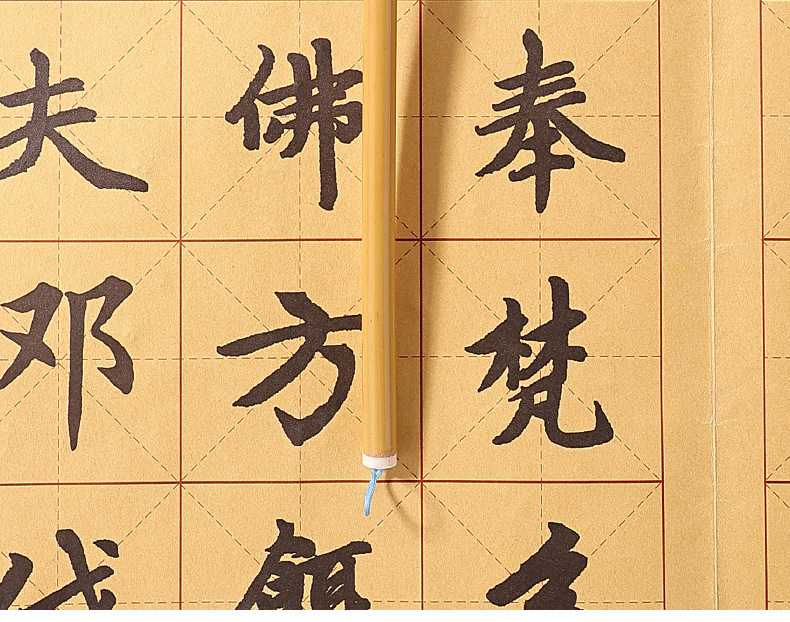 奉梵
佛方
夫邓